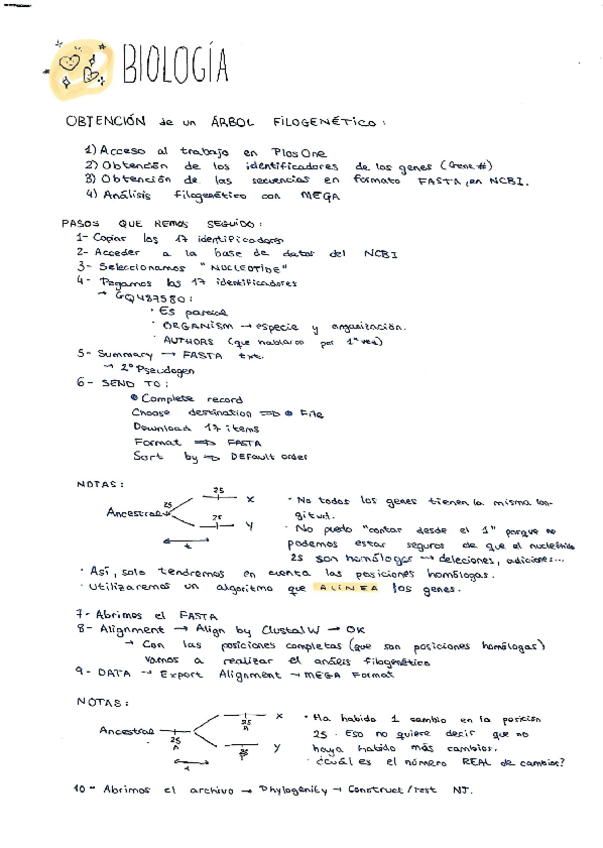 BIOLOGÍA
OBTENCIÓN de un ÁRBOL FILOGENÉTICO:
1) Acceso al trabajo en PlosOne
2) Obtención de los identificadores de los genes (Gene #)
3) Obtención de las secuencias en formato FASTA, en NCBI.
4) Análisis filogenético con MEGA
PASOS QUE HEMOS SEGUIDO:
1- Copiar los 17 identificadores
2- Acceder a la base de datos del NCBI
3- Seleccionamos "NUCLEOTIDE"
4- Pegamos los 17 identificadores
→ GQ487580:
· Es parcial
· ORGANISM → especie y organización.
· AUTHORS (que hablaron por 1ª vez)
5- Summary → FASTA txt.
→ 2º Pseudogen
6- SEND TO:
Complete record
Choose destination ⇒ File
Download 17 items
Format ⇒ FASTA
Sort by ⇒ DEfault order
NOTAS:
Ancestral 25 25 X 25 Y t
· No todos los genes tienen la misma lon-
gitud.
· No puedo "contar desde el 1" porque no
podemos estar seguros de que el nucleótido
25 son homólogos → deleciones, adiciones...
· Así, solo tendremos en cuenta las posiciones homólogas.
· Utilizaremos un algoritmo que ALINEA los genes.
7- Abrimos el FASTA
8- Alignment → Align by ClustalW → OK
→ Con las posiciones completas (que son posiciones homólogas)
vamos a realizar el análisis filogenético
9- DATA → Export Alignment → MEGA Format
NOTAS:
Ancestral 25 A 25 A X 25 Y t
· Ha habido 1 cambio en la posición
25. Eso no quiere decir que no
haya habido más cambios.
· ¿Cuál es el número REAL de cambios?
10- Abrimos el archivo → Phylogenity → Construct/test NJ.